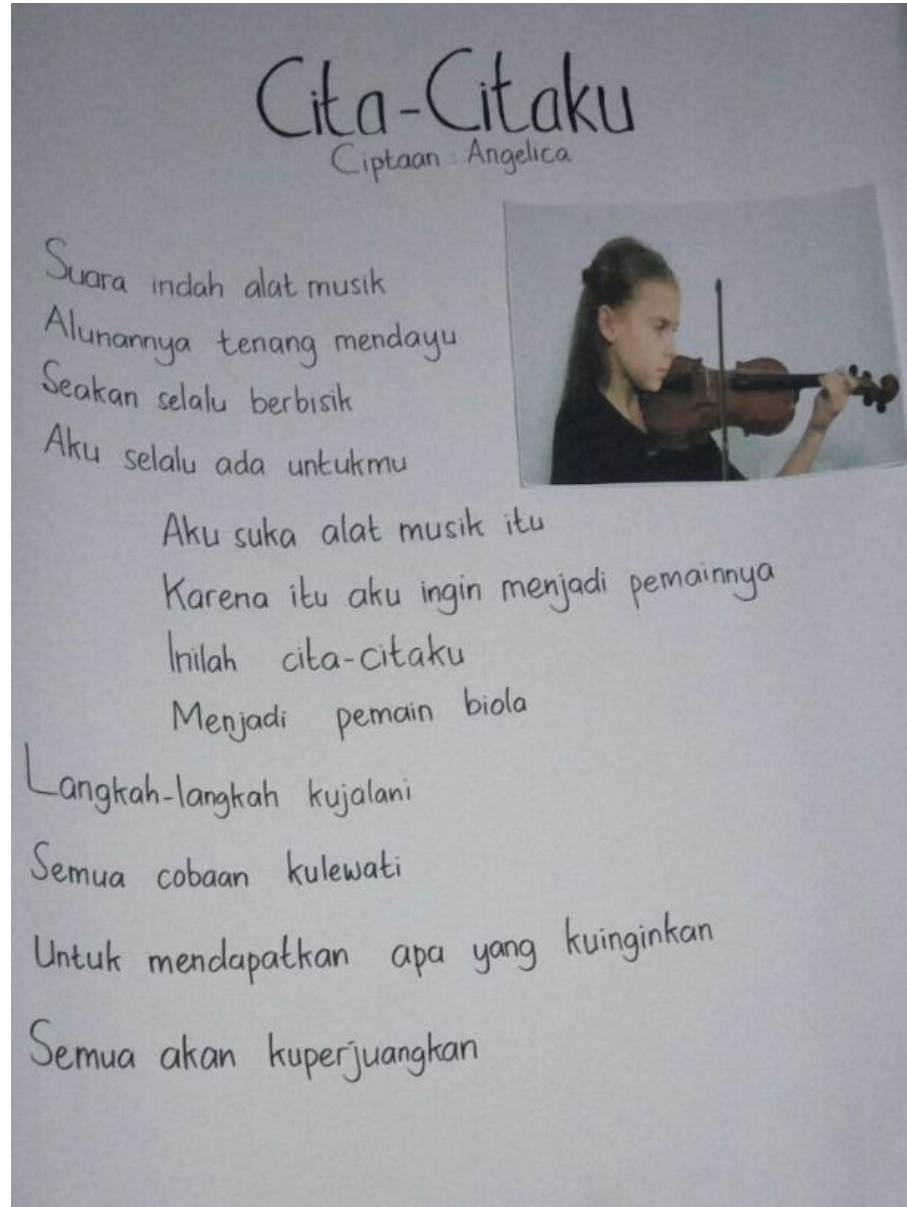 Cita-Citaku
Ciptaan : Angelica
Suara indah alat musik
Alunannya tenang mendayu
Seakan selalu berbisik
Aku selalu ada untukmu
Aku suka alat musik itu
Karena itu aku ingin menjadi pemainnya
Inilah cita-citaku
Menjadi pemain biola
Langkah-langkah kujalani
Semua cobaan kulewati
Untuk mendapatkan apa yang kuinginkan
Semua akan kuperjuangkan